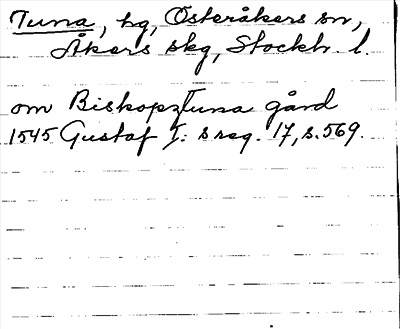 Tuna, hg, Österåkers sn,
Åkers skg, Stockh. l.
om BiskopzTuna gård
1545 Gustaf I: s reg. 17, s. 569.